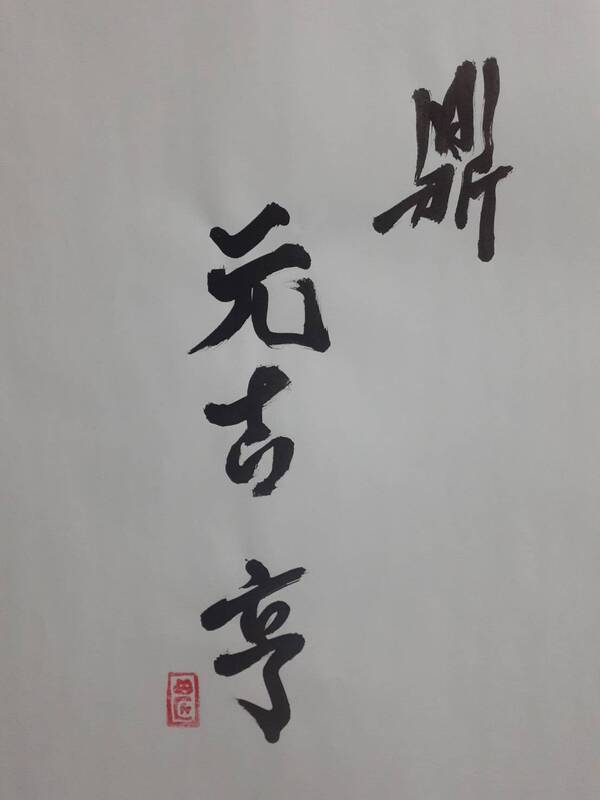 鼎
元吉亨